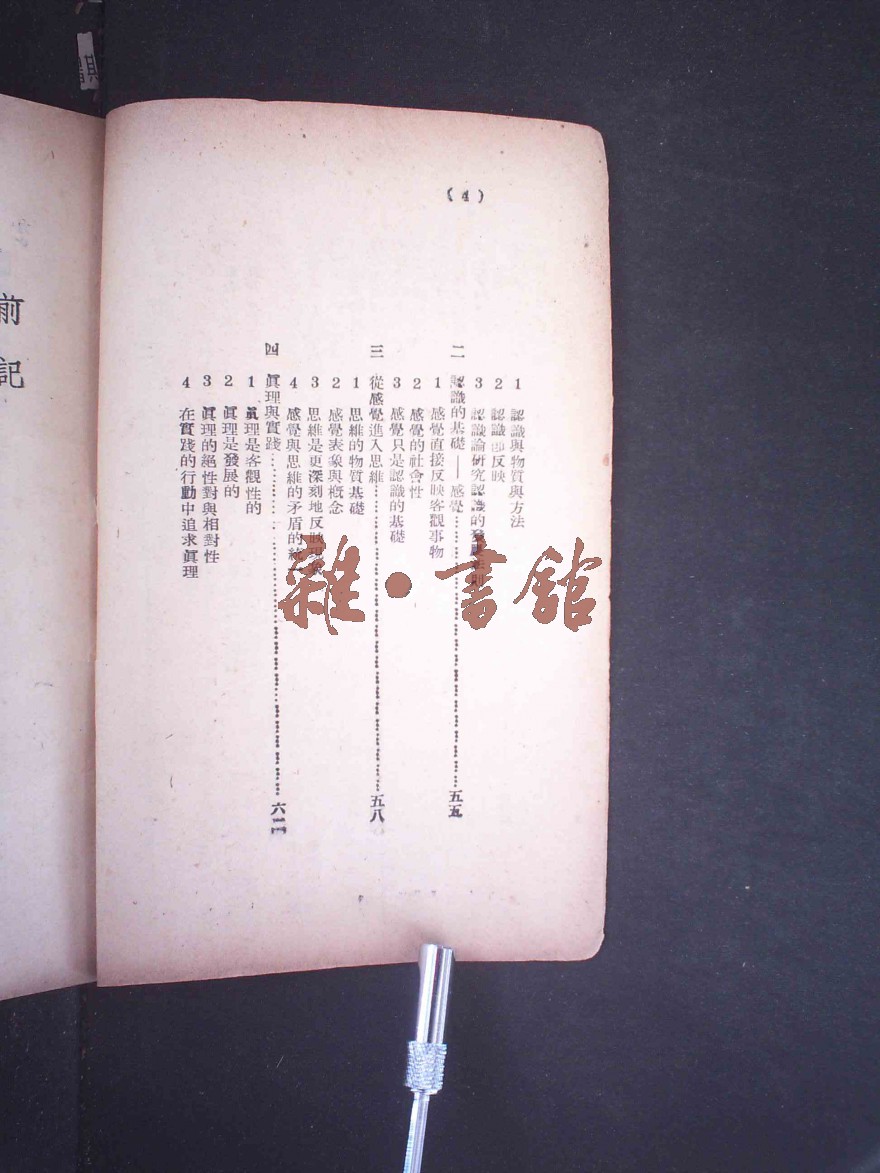 (4)
1 認識與物質與方法
2 認識即反映
3 認識論研究認識的發展法則
二 認識的基礎——感覺……五五
1 感覺直接反映客觀事物
2 感覺的社會性
3 感覺只是認識的基礎
三 從感覺進入思維……五八
1 思維的物質基礎
2 感覺表象與概念
3 思維是更深刻地反映現象
4 感覺與思維的矛盾的統一
四 眞理與實踐……六二
1 眞理是客觀性的
2 眞理是發展的
3 眞理的絕性對與相對性
4 在實踐的行動中追求眞理
前記
雜·書館